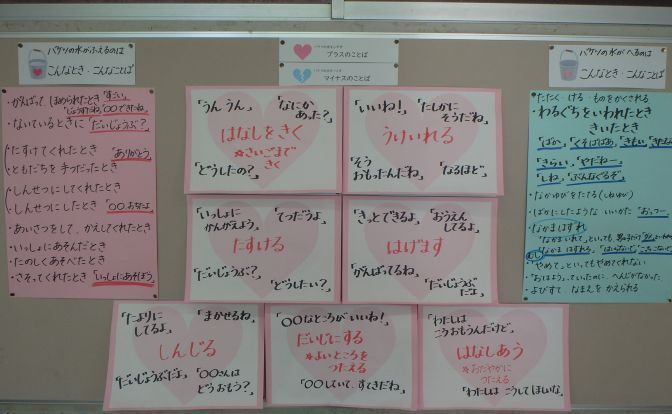 バケツの水がふえるのは
こんなとき・こんなことば
プラスのことば
マイナスのことば
バケツの水がへるのは
こんなとき・こんなことば
・がんばって ほめられたとき「すごい」
「じょうずだね」「○○できたね」
・ないているときに「だいじょうぶ?」
・たすけてくれたとき 「ありがとう」
・ともだちを手つだったとき
・しんせつにしてくれたとき
・しんせつにしたとき
・あいさつをして、かえしてくれたとき
・いっしょにあそんだとき
・たのしくあそべたとき
・さそってくれたとき「いっしょにあそぼう」
「うんうん」
「なにか
あった?」
はなしをきく
☆さいごまで
きく
「どうしたの?」
「いいね!」
「たしかに
そうだね」
うけいれる
「そう
おもったんだね」
「なるほど」
「いっしょに
かんがえよう」
「てつだうよ」
たすける
「だいじょうぶ?」
「どうしたい?」
「きっとできるよ」
「おうえん
してるよ」
はげます
「がんばってるね」
「だいじょうぶ
だよ」
「たよりに
してるよ」
「まかせるね」
しんじる
「だいじょうぶだよ」
「○○さんは
どうおもう?」
「○○なところがいいね!」
だいじにする
☆よいところを
つたえる
「○○していて、すてきだね」
「わたしは
こうおもうんだけど。」
はなしあう
☆おだやかに
つたえる
「わたしは こうしてほしいな。」
・たたく・ける ものをかくされる
・わるぐちをいわれたとき
きいたとき
「ばか」「くそばばあ」「きもい」
「きらい」「やだねー」
「しね」「ぶんなぐるぞ」
・なかゆびをたてる
・ばかにしたような いいかた
・なかまはずれ
「なかまいれて」といっても、
なかまはずれ
むし
・「やめて」といってもやめてくれない
・「おはよう」っていったのに、へんじがなかった
・よびすて なまえを かえられる